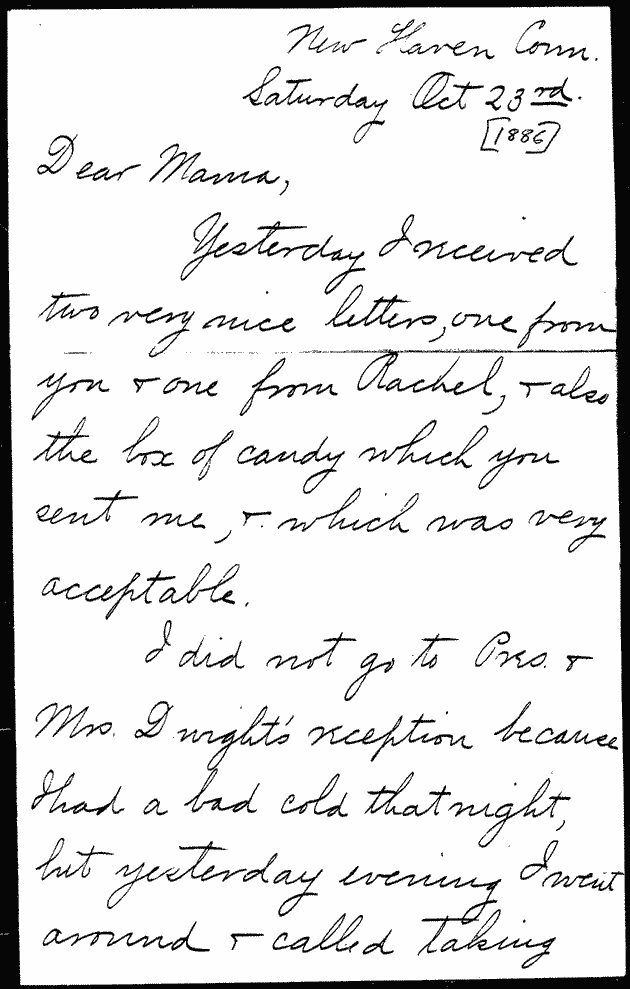 New Haven Conn.
Saturday Oct 23rd.
[1886]
Dear Mama,
Yesterday I received
two very nice letters, one from
you & one from Rachel, & also
the box of candy which you
sent me, & which was very
acceptable.
I did not go to Pres. &
Mrs. Dwight's reception because
I had a bad cold that night,
but yesterday evening I went
around & called taking